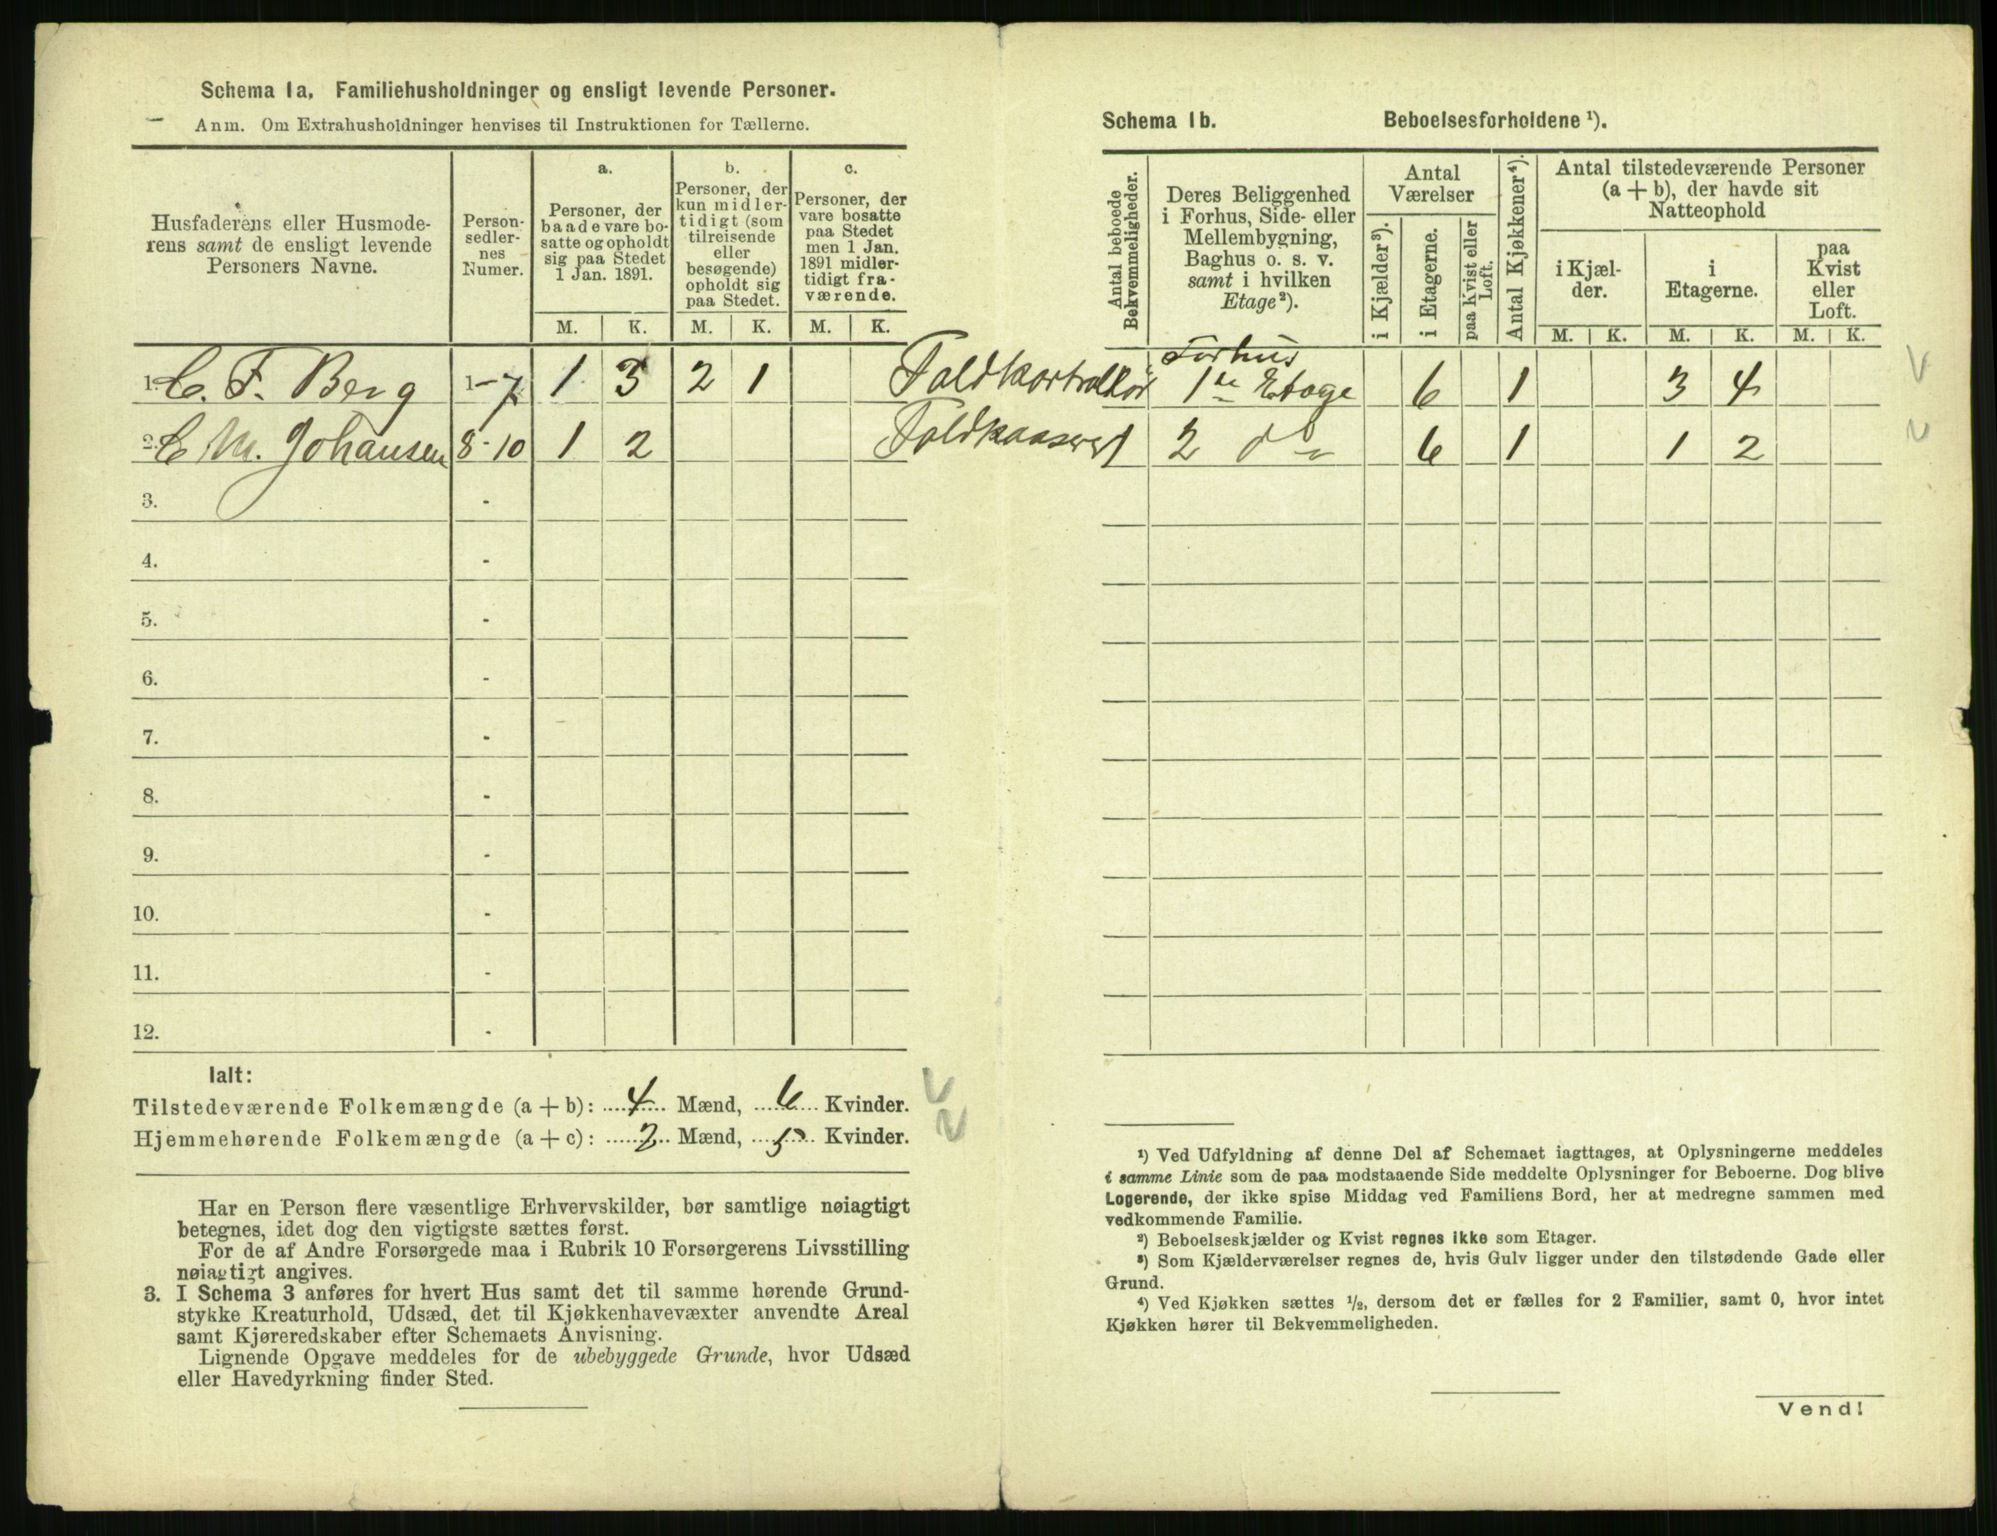 Schema 1a, Familiehusholdninger og ensligt levende Personer.
Anm. Om Extrahusholdninger henvises til Instruktionen for Tællerne.
Husfaderens eller Husmode-
rens samt de ensligt levende
Personers Navne.
Person-
sedler-
nes
Numer.
a.
Personer, der
baade vare bo-
satte og opholdt
sig paa Stedet
1 Jan. 1891.
M. K.
b.
Personer, der
kun midler-
tidigt (som
tilreisende
eller
besøgende)
opholdt sig
paa Stedet.
M. K.
c.
Personer, der
vare bosatte
paa Stedet
men 1 Jan.
1891 midler-
tidigt fra-
værende.
M. K.
1. C. F. Berg 1-7 1 3 2 1 Toldkontrollør
2. C. M. Johansen 8-10 1 2
3. -
4. -
5. -
6. -
7. -
8. -
9. -
10. -
11. -
12. -
Ialt:
Tilstedeværende Folkemængde (a + b): 4 Mænd, 6 Kvinder.
Hjemmehørende Folkemængde (a + c): 2 Mænd, 5 Kvinder.
Har en Person flere væsentlige Erhvervskilder, bør samtlige nøiagtigt
betegnes, idet dog den vigtigste sættes først.
For de af Andre Forsørgede maa i Rubrik 10 Forsørgerens Livsstilling
nøiagtigt angives.
3. I Schema 3 anføres for hvert Hus samt det til samme hørende Grund-
stykke Kreaturhold, Udsæd, det til Kjøkkenhavevæxter anvendte Areal
samt Kjøreredskaber efter Schemaets Anvisning.
Lignende Opgave meddeles for de ubebyggede Grunde, hvor Udsæd
eller Havedyrkning finder Sted.
Schema 1b. Beboelsesforholdene ¹).
Antal beboede
Bekvemmeligheder.
Deres Beliggenhed
i Forhus, Side- eller
Mellembygning,
Baghus o. s. v.
samt i hvilken
Etage²).
Antal
Værelser
i Kjælder³).
i Etagerne.
paa Kvist eller
Loft.
Antal Kjøkkener⁴).
Antal tilstedeværende Personer
(a + b), der havde sit
Natteophold
i Kjæl-
der.
M. K.
i
Etagerne.
M. K.
paa
Kvist
eller
Loft.
M. K.
Forhus
1ste Etage 6 1 3 4
1 2 do 6 1 1 2
¹) Ved Udfyldning af denne Del af Schemaet iagttages, at Oplysningerne meddeles
i samme Linie som de paa modstaaende Side meddelte Oplysninger for Beboerne. Dog blive
Logerende, der ikke spise Middag ved Familiens Bord, her at medregne sammen med
vedkommende Familie.
²) Beboelseskjælder og Kvist regnes ikke som Etager.
³) Som Kjælderværelser regnes de, hvis Gulv ligger under den tilstødende Gade eller
Grund.
⁴) Ved Kjøkken sættes ½, dersom det er fælles for 2 Familier, samt 0, hvor intet
Kjøkken hører til Bekvemmeligheden.
Vend!